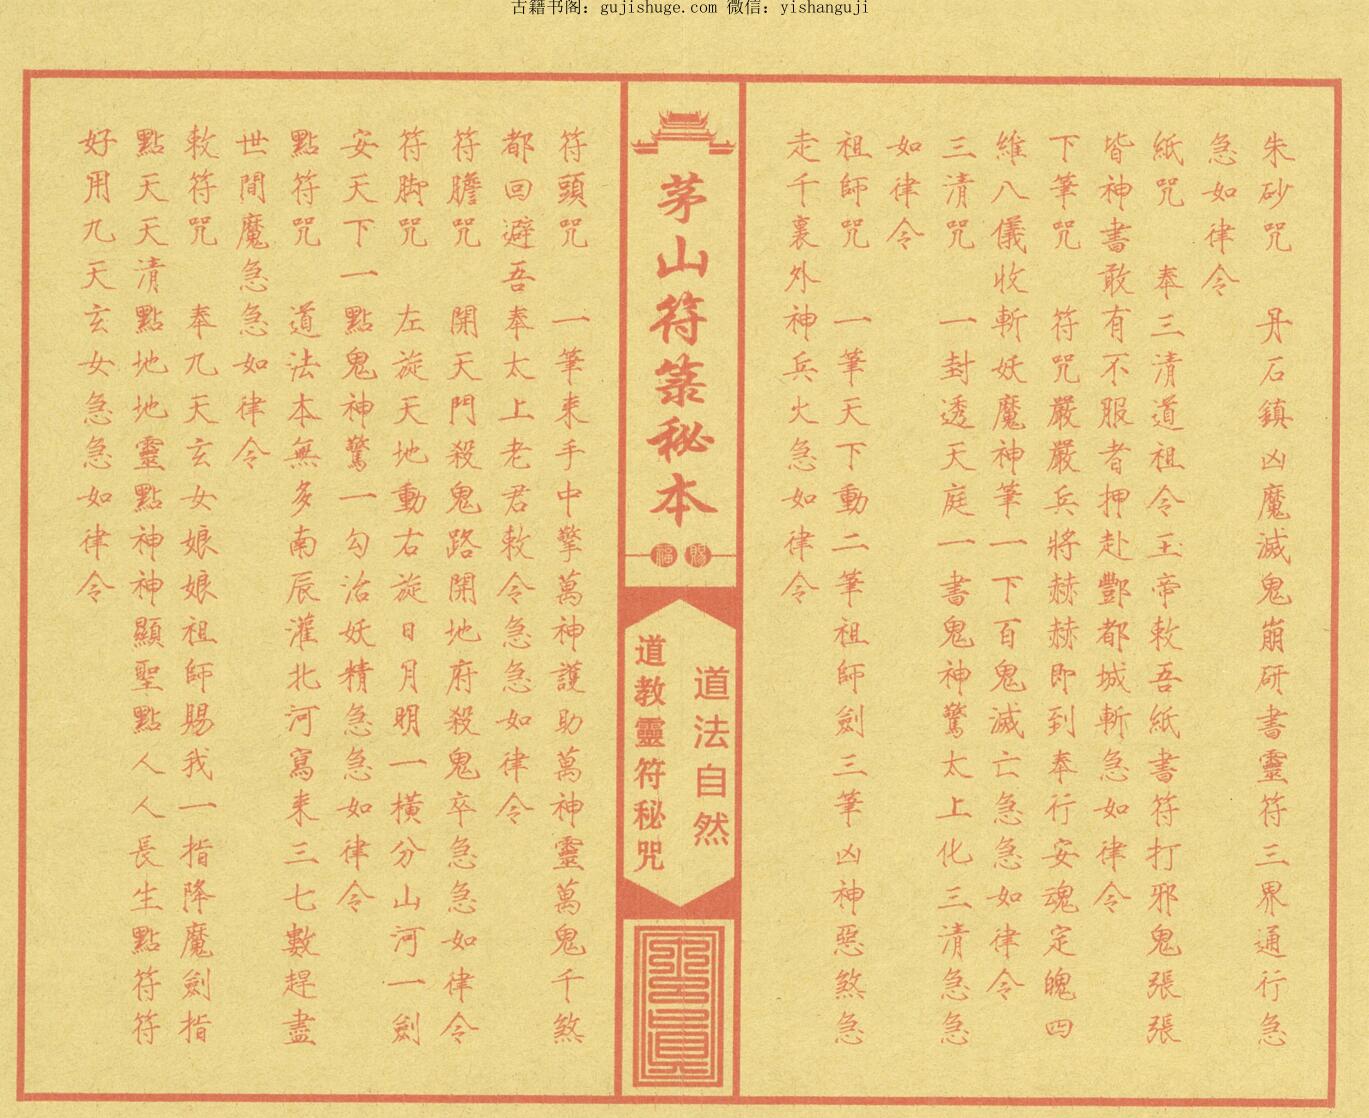 古籍书阁：gujishuge.com 微信：yishanguji
朱砂咒　丹石鎮凶魔滅鬼崩研書靈符三界通行急
急如律令
紙咒　奉三清道祖令玉帝敕吾紙書符打邪鬼張張
皆神書敢有不服者押赴酆都城斬急如律令
下筆咒　符咒嚴嚴兵將赫赫即到奉行安魂定魄四
維八儀收斬妖魔神筆一下百鬼滅亡急急如律令
三清咒　一封透天庭一書鬼神驚太上化三清急急
如律令
祖師咒　一筆天下動二筆祖師劍三筆凶神惡煞急
走千裏外神兵火急如律令
茅山符箓秘本
賜福
道法自然
道教靈符秘咒
符頭咒　一筆来手中擎萬神護助萬神靈萬鬼千煞
都回避吾奉太上老君敕令急急如律令
符膽咒　開天門殺鬼路開地府殺鬼卒急急如律令
符脚咒　左旋天地動右旋日月明一橫分山河一劍
安天下一點鬼神驚一勾治妖精急急如律令
點符咒　道法本無多南辰灌北河寫来三七數趕盡
世間魔急急如律令
敕符咒　奉九天玄女娘娘祖師賜我一指降魔劍指
點天天清點地地靈點神神顯聖點人人長生點符符
好用九天玄女急急如律令